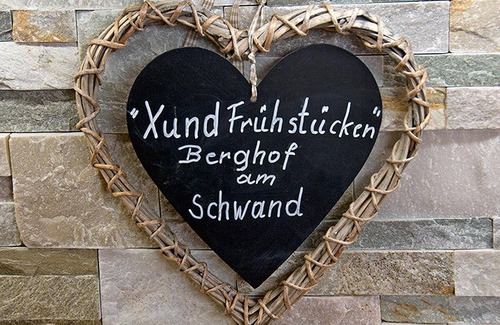 "Xund Frühstücken"
Berghof
am
Schwand